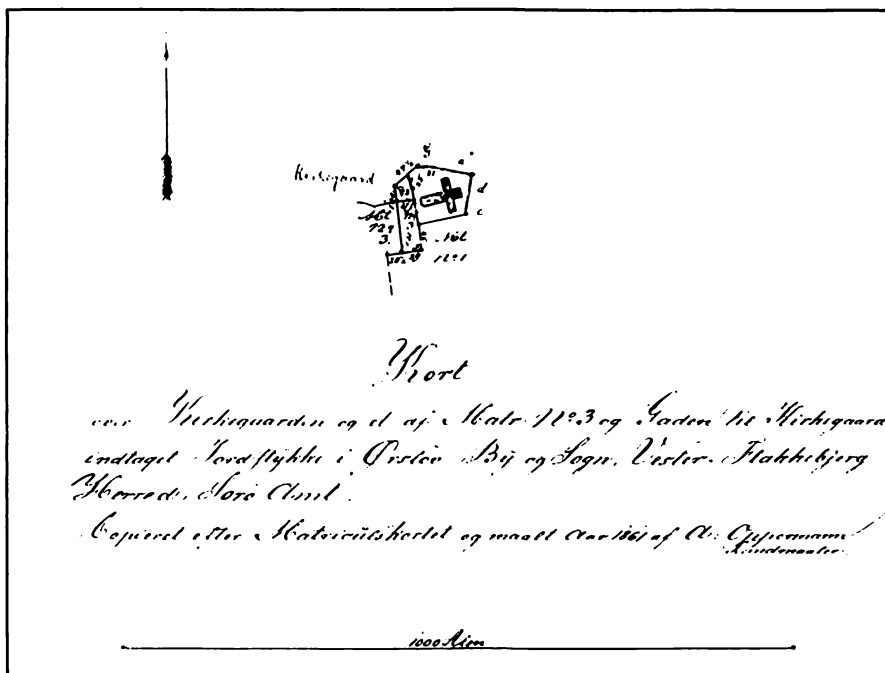 Kirkegaard
g
e
d
c
Mtl
No
3.
Mtl
No 1
Kort
over Kirkeguarden og et af Matr. No 3 og Gaden til Kirkegaard
indtaget Jordstykke i Ørsløv By og Sogn, Vester-Flakkebjerg
Herred, Sorø Amt.
Copieret efter Matriculskortet og maalt Aar 1861 af A. Oppermann
Landmaaler
1000 Alen